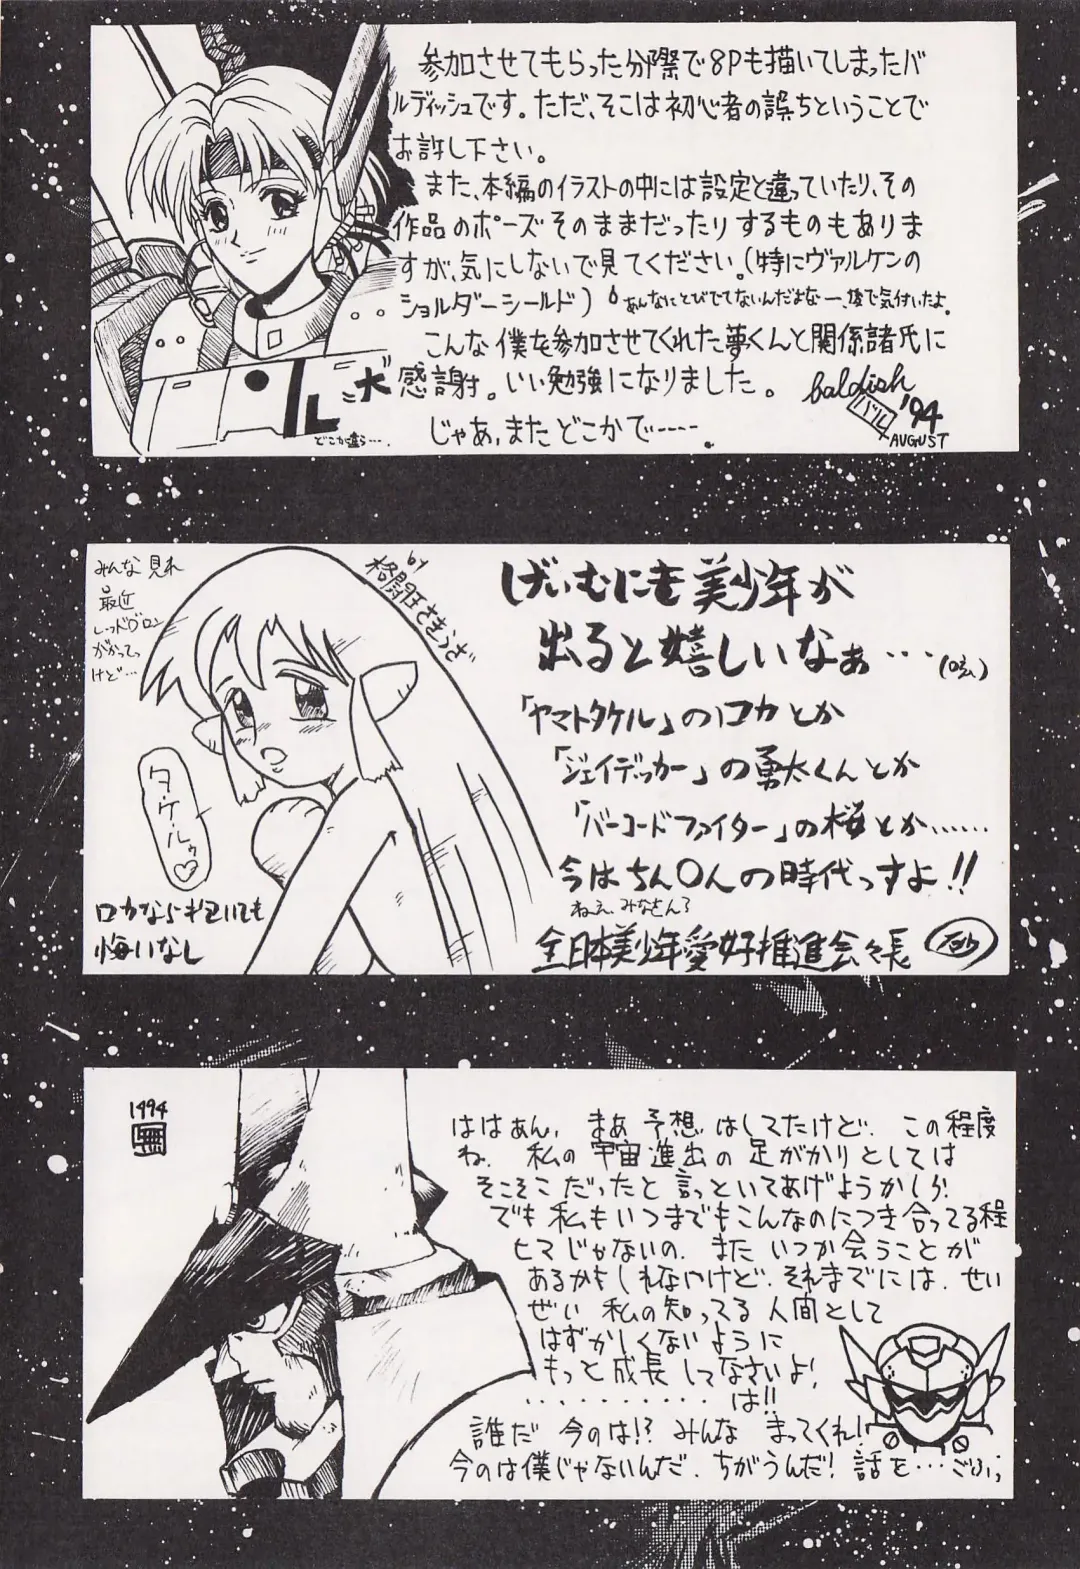 参加させてもらった分際で8Pも描いてしまったバ
ルディッシュです。ただ、そこは初心者の誤ちということで
お許し下さい。
また、本編のイラストの中には設定と違っていたり、その
作品のポーズそのままだったりするものもありま
すが、気にしないで見てください。(特にヴァルケンの
ショルダーシールド)
あんなにとびでてないんだよなー、後で気付いたよ。
こんな僕を参加させてくれた夢くんと関係諸氏に
大感謝。いい勉強になりました。
じゃあ、またどこかで-----。
baldish
バル
'94
AUGUST
みんな見れ
最近
けど…
by
格闘王さきうさ
げぃむにも美少年が
出ると嬉しいなぁ…(泣)
「ヤマトタケル」のロカとか
「ジェイデッカー」の勇太くんとか
「バーコードファイター」の桜とか……
今はちん〇んの時代っすよ!!
ねぇ、みなさん?
全日本美少年愛好推進会々長
タ・ケ・ルゥ♡
悔いなし
1994
ははぁん、まあ予想はしてたけど、この程度
ね。私の宇宙進出の足がかりとしては
そこそこだったと言っといてあげようかしら。
でも私もいつまでもこんなのにつき合ってる程
ヒマじゃないの。またいつか会うことが
あるかもしれないけど、それまでには、せい
ぜい私の知ってる人間として
はずかしくないように
もっと成長してなさいよ!
・・・・・・・・・・は!!
誰だ今のは!?みんなまってくれ!
今のは僕じゃないんだ、ちがうんだ!話を…ごふっ